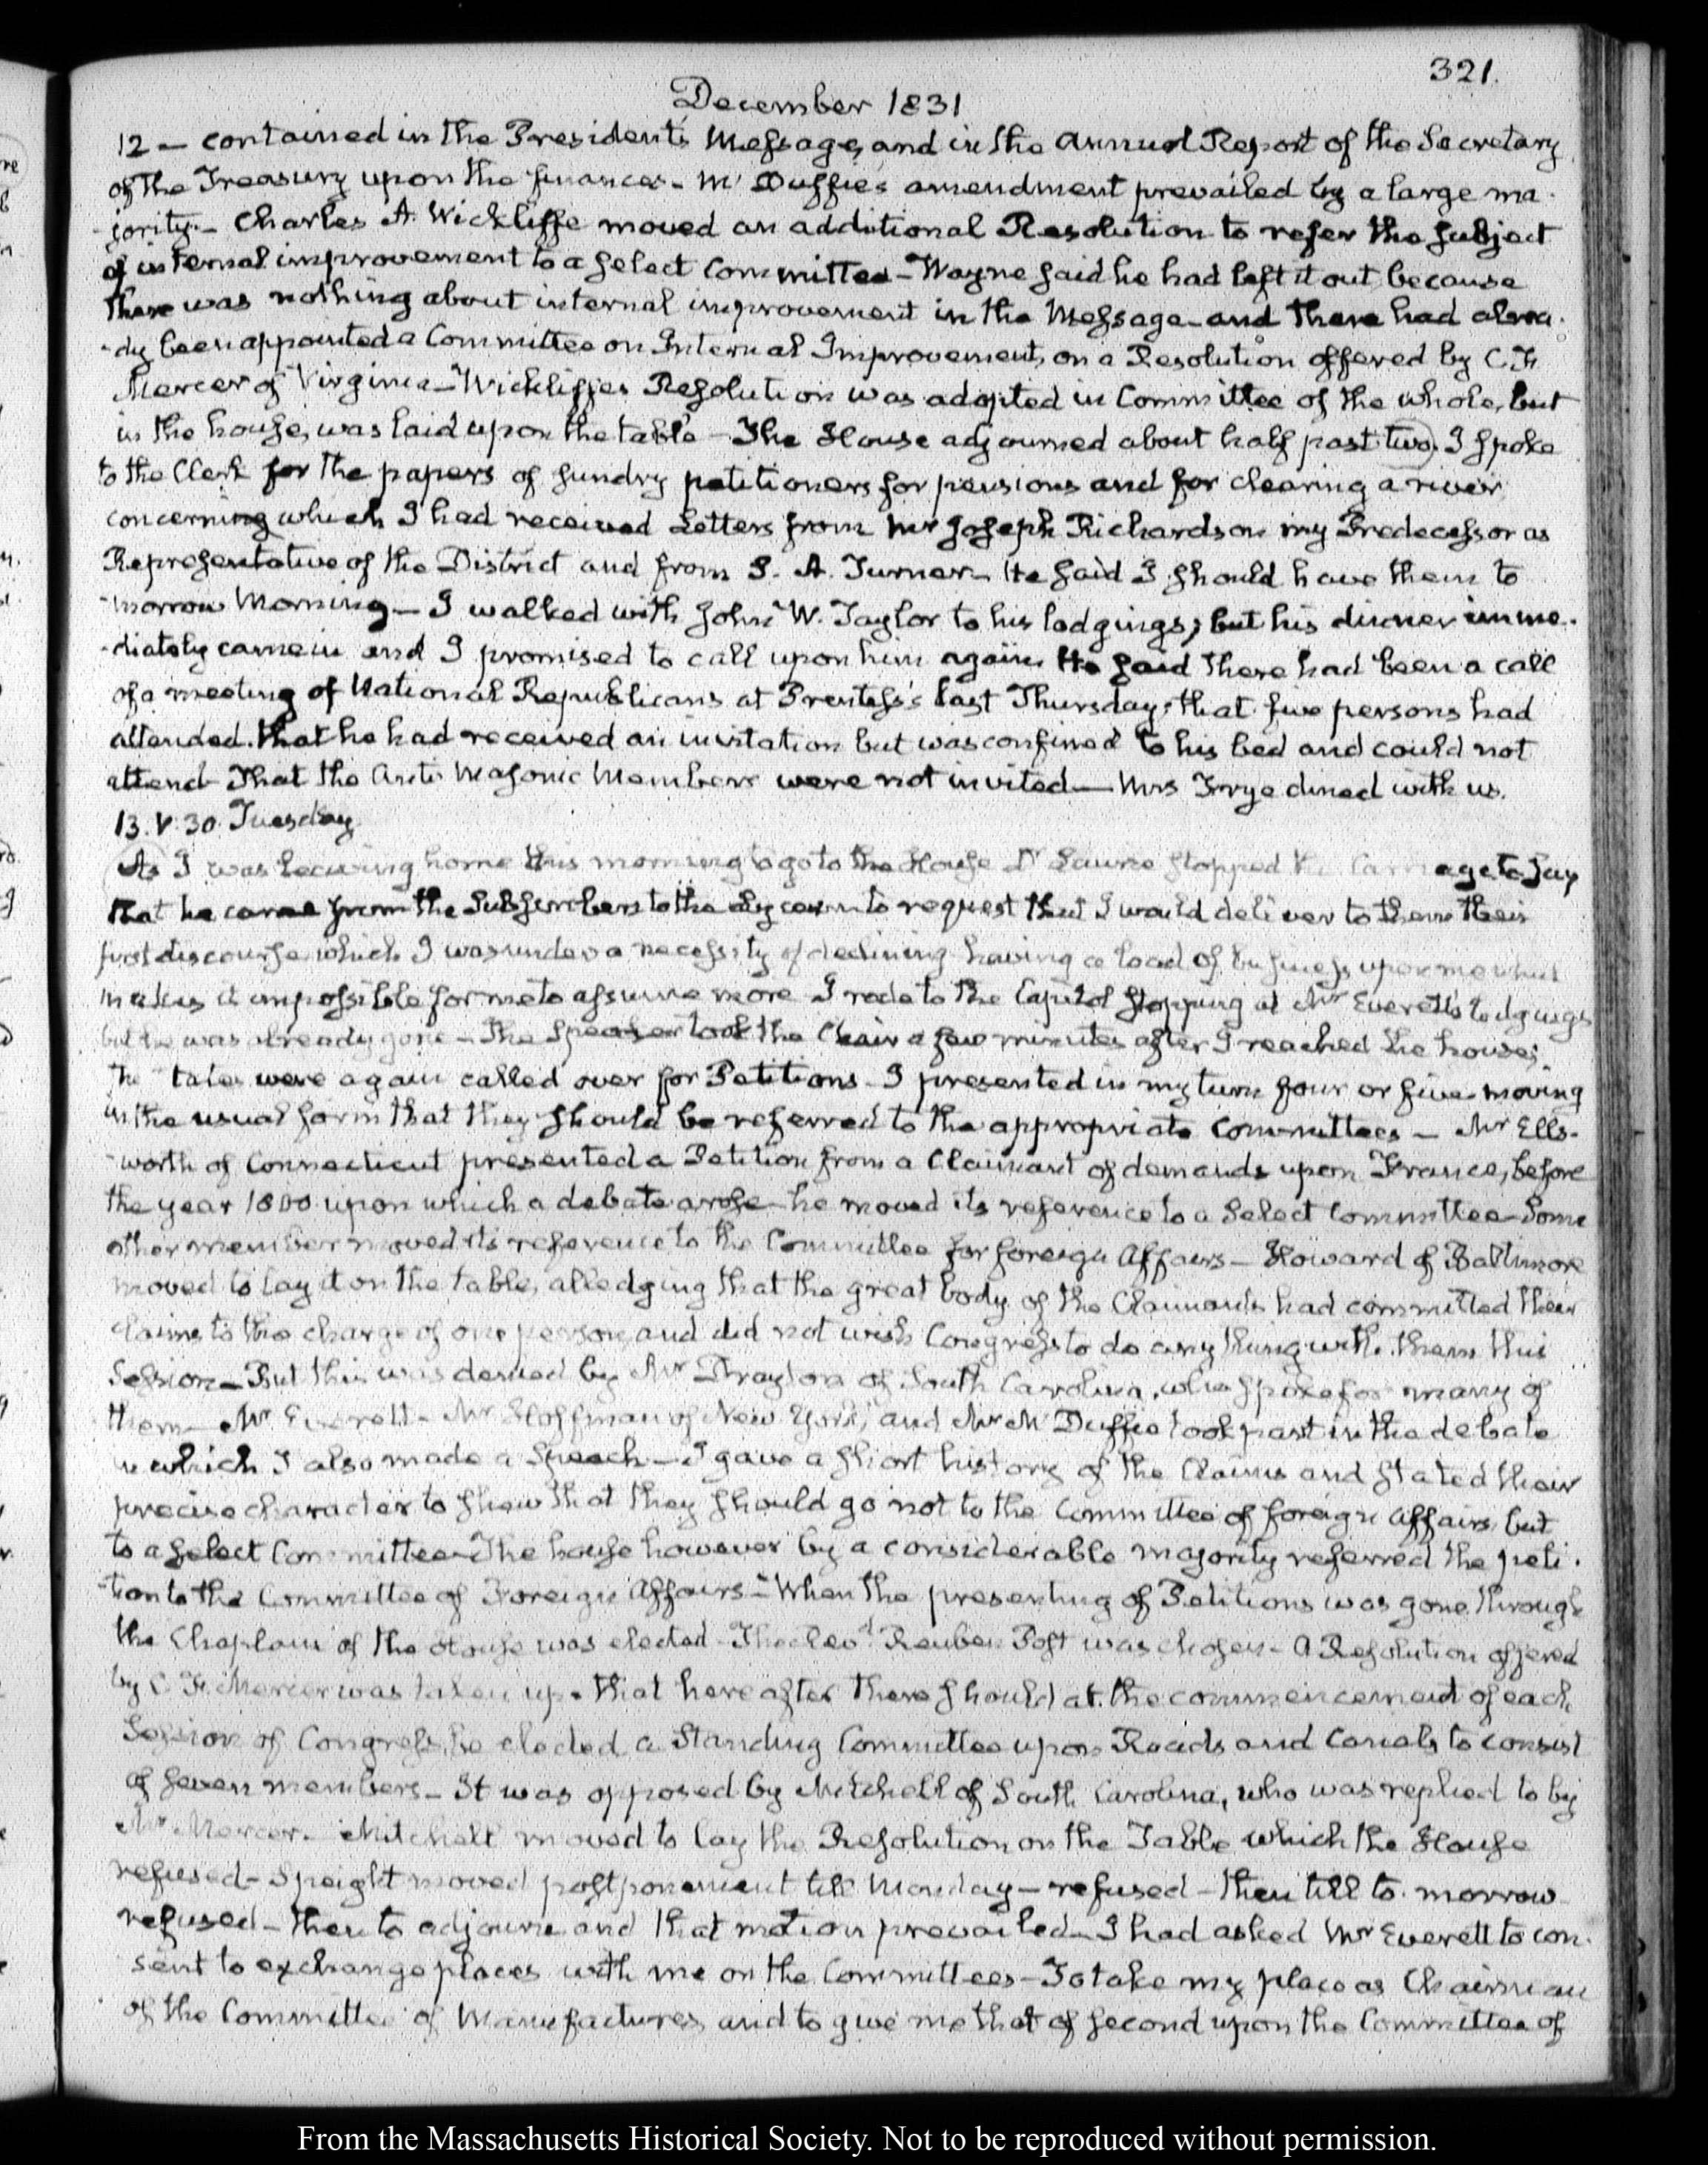 321.
December 1831
12 — contained in the President's Message, and in the annual Report of the Secretary
of the Treasury upon the finances — Mc Duffie's amendment prevailed by a large ma-
-jority. — Charles A. Wickliffe moved an additional Resolution to refer the subject
of internal improvement to a select Committee — Wayne said he had left it out because
there was nothing about internal improvement in the Message — and there had alrea-
-dy been appointed a Committee on Internal Improvement, on a Resolution offered by C. F.
Mercer of Virginia — Wickliffe's Resolution was adopted in Committee of the whole, but
in the house, was laid upon the table — The House adjourned about half past two. I spoke
to the Clerk for the papers of sundry petitioners for pensions and for clearing a river
concerning which I had received Letters from Mr Joseph Richardson my Predecessor as
Representative of the District and from S. A. Turner — He said I should have them to
-morrow Morning — I walked with John W. Taylor to his lodgings; but his dinner imme-
-diately came in and I promised to call upon him again. He said there had been a call
of a meeting of National Republicans at Prentiss's last Thursday; that five persons had
attended. that he had received an invitation but was confined to his bed and could not
attend — That the Anti Masonic Members were not invited — Mrs Frye dined with us.
13. V. 30. Tuesday.
As I was leaving home this morning to go to the House Dr Laurie stopped the Carriage to say
that he came from the Subscribers to the Lyceum to request that I would deliver to them their
first discourse, which I was under a necessity of declining having a load of business upon me which
makes it impossible for me to assume more I rode to the Capitol stopping at Mr Everett's lodgings
but he was already gone — The Speaker took the Chair a few minutes after I reached the house;
The States were again called over for Petitions — I presented in my turn four or five — moving
in the usual form that they should be referred to the appropriate Committees — Mr Ells-
-worth of Connecticut presented a Petition from a Claimant of demands upon France, before
the year 1800 upon which a debate arose — he moved its reference to a Select Committee — Some
other member moved its reference to the Committee for foreign Affairs — Howard of Baltimore
moved to lay it on the table, alledging that the great body of the Claimants had committed their
claims to the charge of one person, and did not wish Congress to do any thing with them this
Session — But this was denied by Mr Drayton of South Carolina, who spoke for many of
them — Mr. Everett — Mr Hoffman of New York, and Mr Mc Duffie took part in the debate
in which I also made a Speech — I gave a short history of the Claims and stated their
precise character to shew that they should go not to the Committee of foreign affairs, but
to a select Committee — The house however by a considerable majority referred the peti-
-tion to the Committee of Foreign Affairs — When the presenting of Petitions was gone through
the Chaplain of the House was elected — The Revd Reuben Post was chosen — A Resolution offered
by C. F. Mercer was taken up — that hereafter there should at the commencement of each
Session of Congress, be elected a Standing Committee upon Roads and Canals to consist
of seven members — It was opposed by Mitchell of South Carolina, who was replied to by
Mr Mercer. Mitchell moved to lay the Resolution on the Table which the House
refused — Speight moved postponement till Monday — refused — then till to-morrow
refused — then to adjourn and that motion prevailed — I had asked Mr Everett to con-
sent to exchange places with me on the Committees — To take my place as Chairman
of the Committee of Manufactures, and to give me that of second upon the Committee of
From the Massachusetts Historical Society. Not to be reproduced without permission.